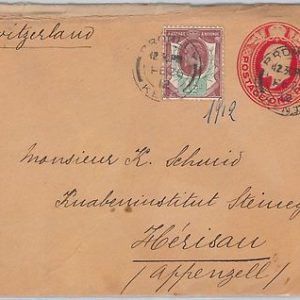 witzerland
POSTAGE & REVENUE
POSTAGE ONE
1912
Monsieur K. Schmid
Knabeninstitut Steineg
Hérisau
(Appenzell)